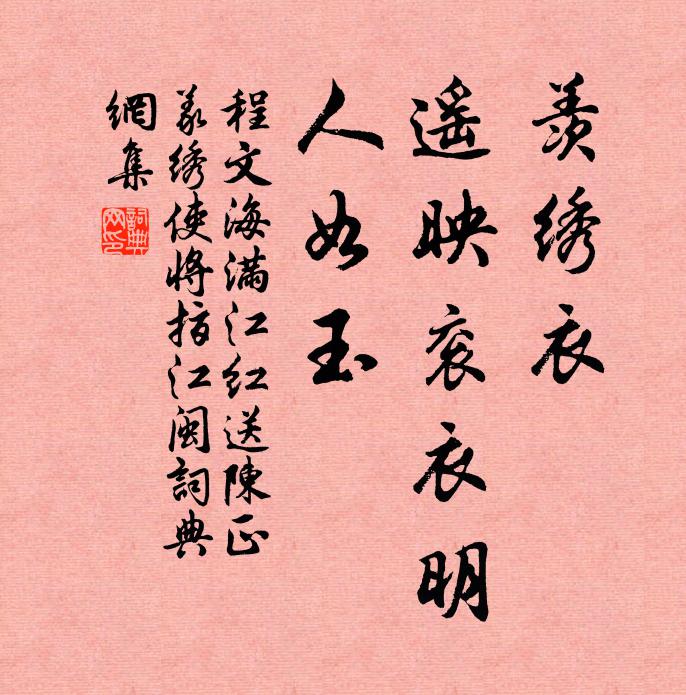 羨绣衣
遥映衮衣明
人如玉
程文海满江红送陳正
义绣使将指江闽詞典
網集
詞典网印